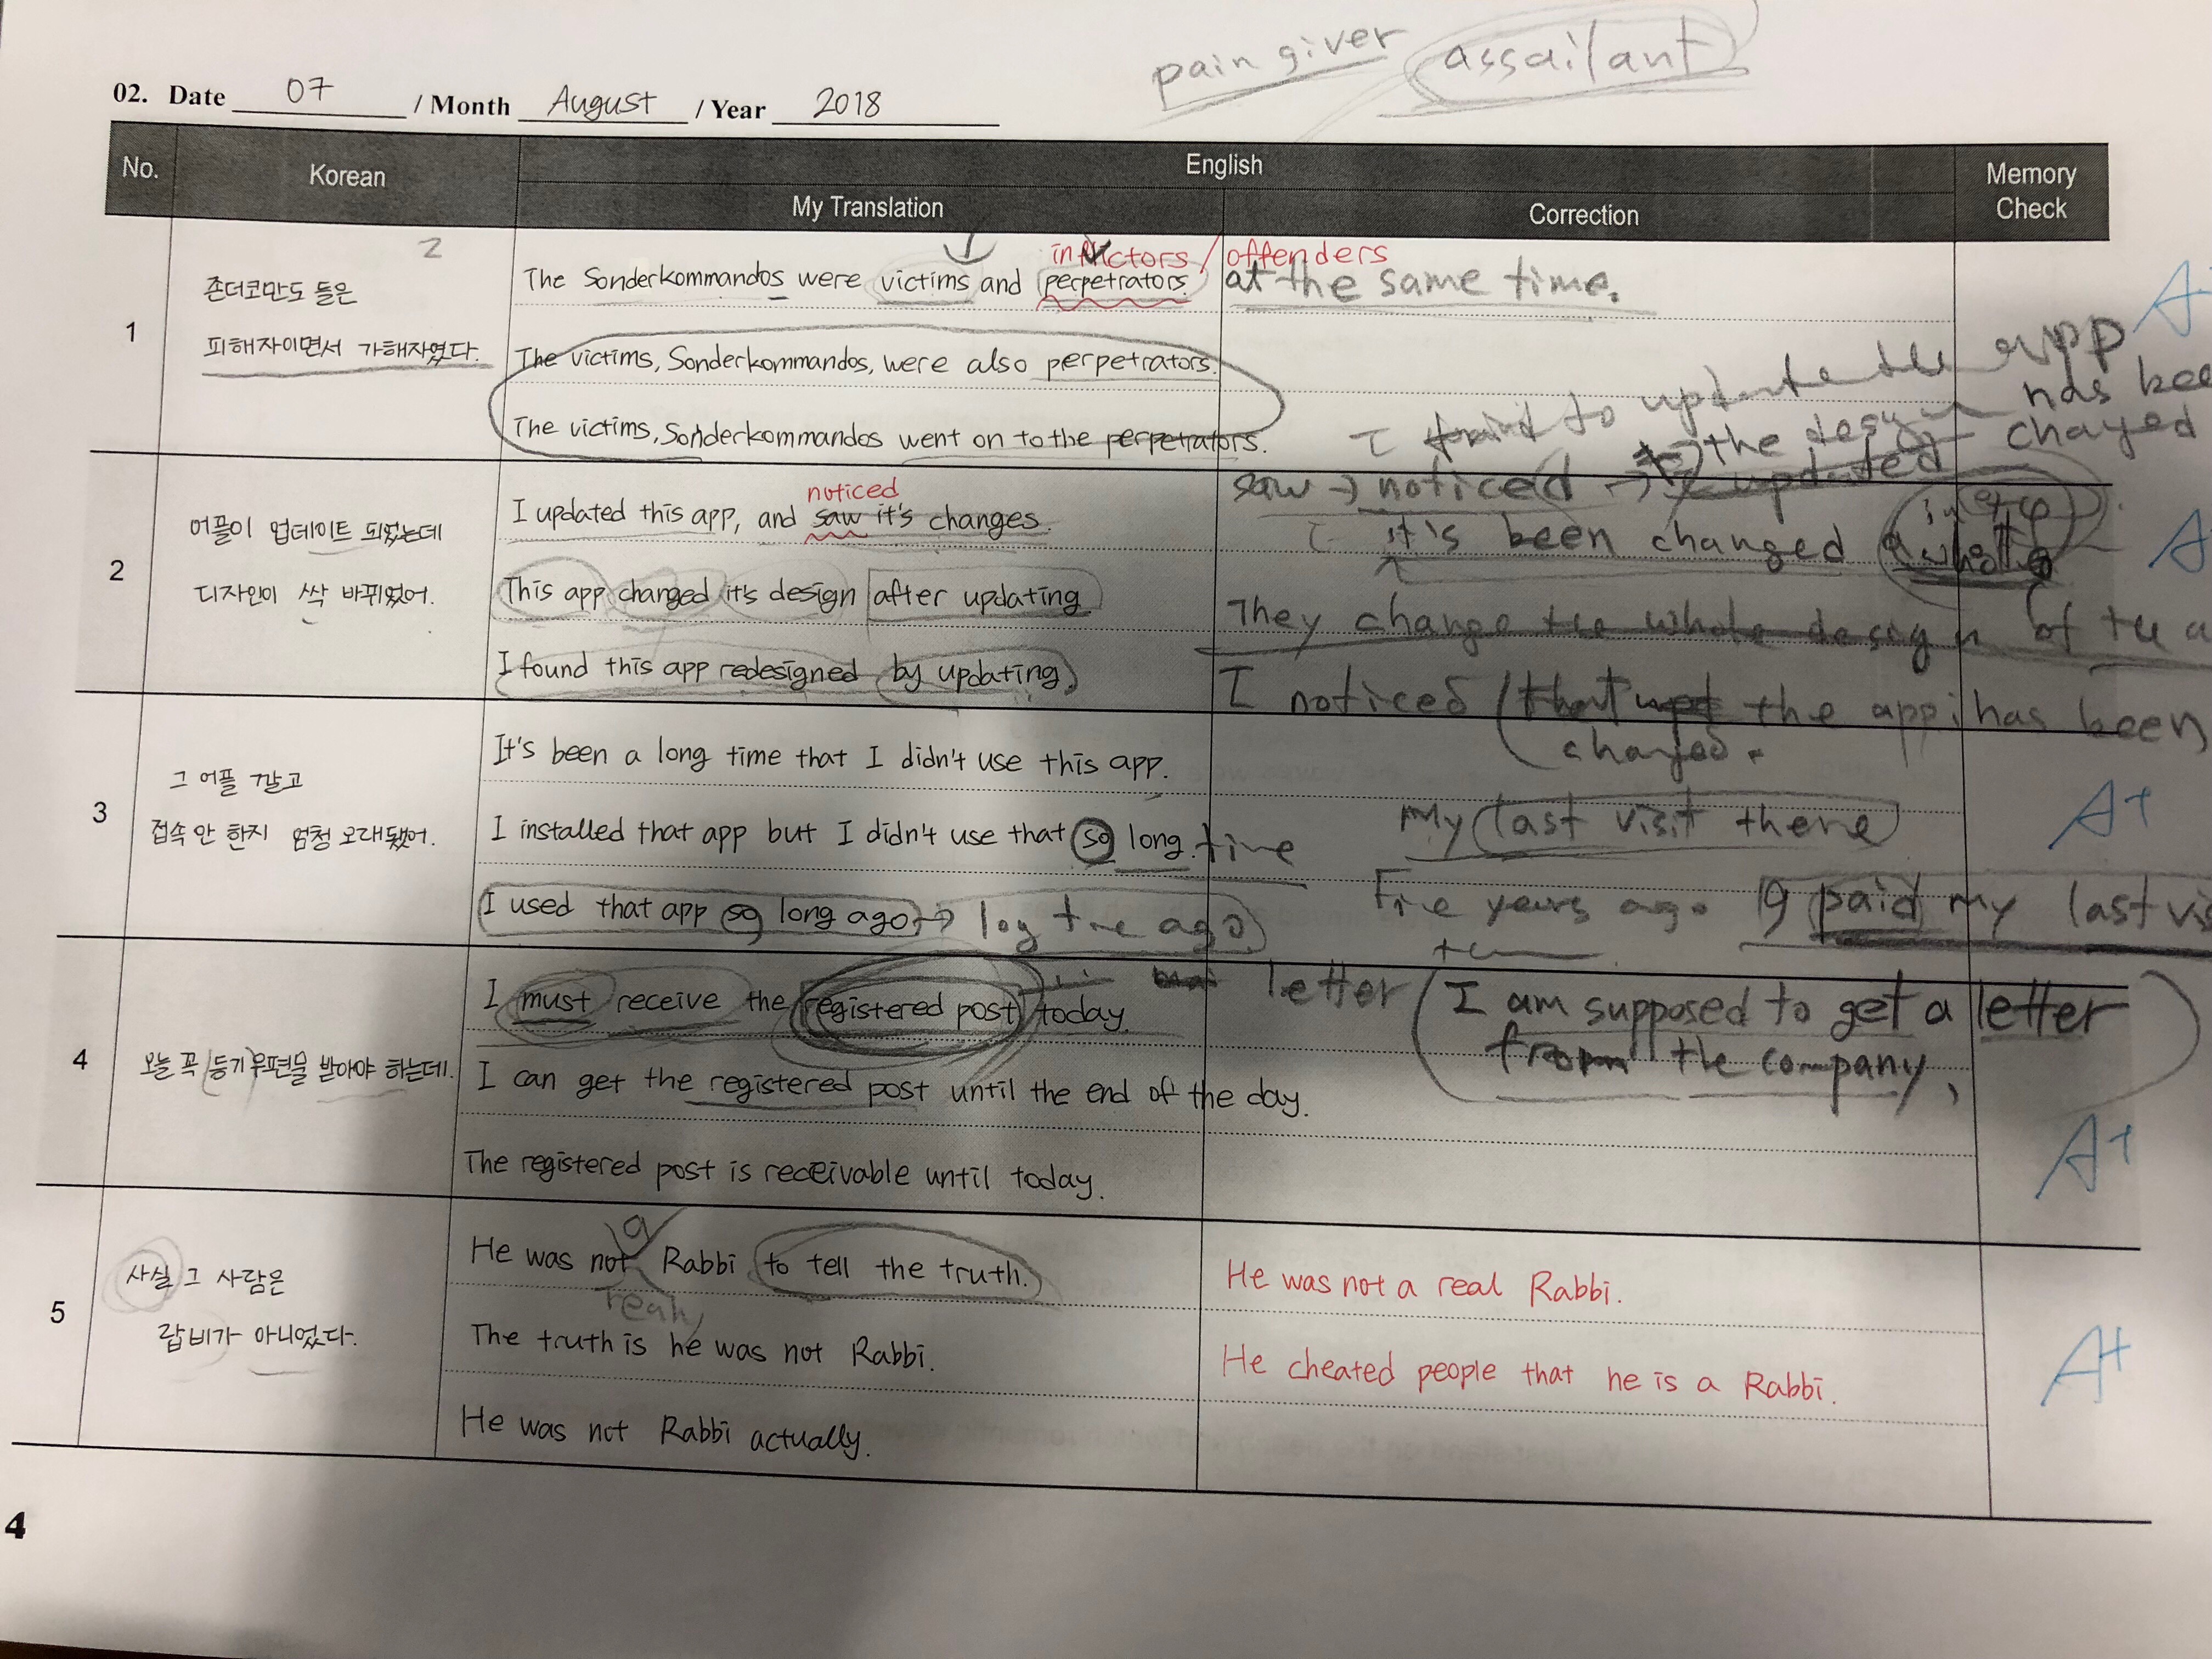 pain giver assailant
02. Date 07 / Month August / Year 2018
No. Korean English Memory Check
My Translation Correction
2
1
존더코만도 들은
피해자이면서 가해자였다.
inflictors / offenders
The Sonderkommandos were victims and perpetrators. at the same time.
The victims, Sonderkommandos, were also perpetrators.
The victims, Sonderkommandos went on to the perpetrators.
A
I to update the app
the design has bee
changed
2
어플이 업데이트 되었는데
디자인이 싹 바뀌었어.
noticed
I updated this app, and saw it's changes.
This app changed it's design after updating
I found this app redesigned by updating.
saw → noticed → I updated
it's been changed
They change the whole design of the a
I noticed that the app has been
changed.
A
3
그 어플 깔고
접속 안 한지 엄청 오래됐어.
It's been a long time that I didn't use this app.
I installed that app but I didn't use that so long. time
I used that app so long ago. → long time ago.
My last visit there
Five years ago I paid my last vis
A+
4
오늘 꼭 등기우편물 받아야 하는데.
I must receive the registered post today.
I can get the registered post until the end of the day.
The registered post is receivable until today.
letter
I am supposed to get a letter
from the company,
A+
5
사실 그 사람은
랍비가 아니었다.
a
He was not Rabbi to tell the truth.
real
The truth is he was not Rabbi.
He was not Rabbi actually.
He was not a real Rabbi.
He cheated people that he is a Rabbi.
A+
4